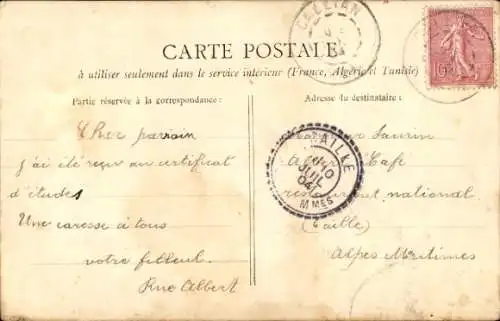 CALLIAN
CARTE POSTALE
à utiliser seulement dans le service intérieur (France, Algérie et Tunisie)
Partie réservée à la correspondance:
Cher parrain
j'ai été reçu au certificat
d'études
Une caresse à tous
votre filleul
Rue Albert
Adresse du destinataire:
Saurin
Café
restaurant national
(Caille)
Alpes Maritimes
JUIL
04
MMES
10